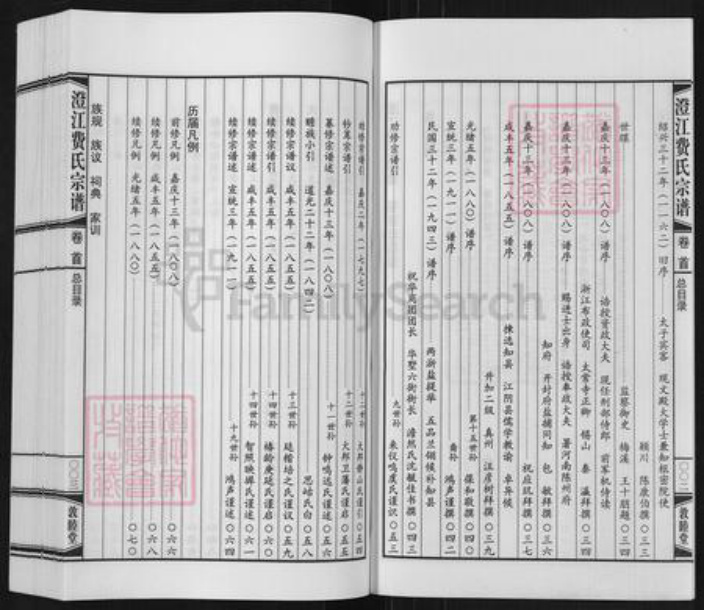 澄江费氏宗谱
卷首
总目录
〇〇二
敦睦堂
绍兴三十二年（一一六二）旧序
太子宾客 观文殿大学士兼知枢密院使
颍川 陈康伯撰 〇三三
世谍
监察御史 梅溪 王十朋题 〇三四
嘉庆十三年（一八〇八）谱序
诰授资政大夫 现任刑部侍郎 前军机侍读
浙江布政使司 太常寺正卿 锡山 秦 瀛拜撰 〇三四
嘉庆十三年（一八〇八）谱序
赐进士出身 诰授奉政大夫 署河南陈州府
知府 开封府盐捕同知 包 敏拜撰 〇三六
嘉庆十三年（一八〇八）谱序
祝应玑拜撰 〇三七
咸丰五年（一八五五）谱序
拣选知县 江阴县儒学教谕 卓异候
升加二级 真州 汪彦树拜撰 〇三九
光绪五年（一八八〇）谱序
第十五世孙 保和敬撰 〇四〇
宣统三年（一九一一）谱序
裔孙 鸿声谨撰 〇四二
民国三十二年（一九四三）谱序
两浙盐提举 五品衔候补知县
祝华高团团长 华墅六街街长 澄然氏沈毓佳书撰 〇四三
助修宗谱引
九世孙 来仪鸣虞氏谨识 〇五三
澄江费氏宗谱
卷首
总目录
〇〇三
敦睦堂
助修宗谱引 嘉庆二年（一七九七）
〇五四
钞募宗谱引
十二世孙 大邦卫藩氏谨启 〇五五
纂修宗谱述 嘉庆十三年（一八〇八）
十一世孙 钟鸣远氏谨述 〇五六
赡族小引 道光二十二年（一八四二）
思岵氏白 〇五八
续修宗谱议 咸丰五年（一八五五）
十三世孙 廷楷培之氏谨议 〇五九
续修宗谱述 咸丰五年（一八五五）
十四世孙 椿龄庚廷氏谨启 〇六〇
续修宗谱述 咸丰五年（一八五五）
十四世孙 智照映辉氏谨述 〇六一
续修宗谱述 宣统三年（一九一一）
十九世孙 鸿声谨述 〇六四
历届凡例
前修凡例 嘉庆十三年（一八〇八）
〇六六
续修凡例 咸丰五年（一八五五）
〇六八
续修凡例 光绪五年（一八八〇）
〇七〇
族规 族议 祠典 家训
FamilySearch